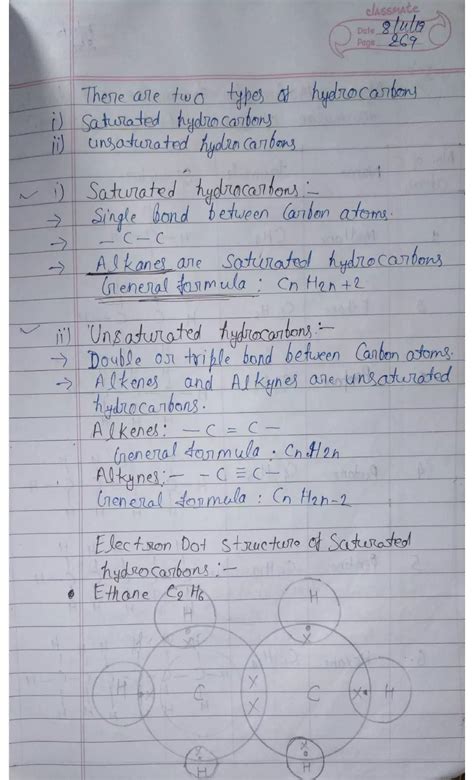 classmate
Date 8/11/19
Page 269
There are two types of hydrocarbons
i) Saturated hydrocarbons
ii) unsaturated hydrocarbons
i) Saturated hydrocarbons:-
→ Single bond between Carbon atoms.
→ - C - C
→ Alkanes are Saturated hydrocarbons
General formula : CnH2n+2
ii) Unsaturated hydrocarbons:-
→ Double or triple bond between Carbon atoms.
→ Alkenes and Alkynes are unsaturated
hydrocarbons.
Alkenes: - C = C -
General formula : CnH2n
Alkynes:- - C ≡ C -
General formula : CnH2n-2
Electron Dot structure of Saturated
hydrocarbons:-
• Ethane C2H6
H H
H C X X C X H
H H